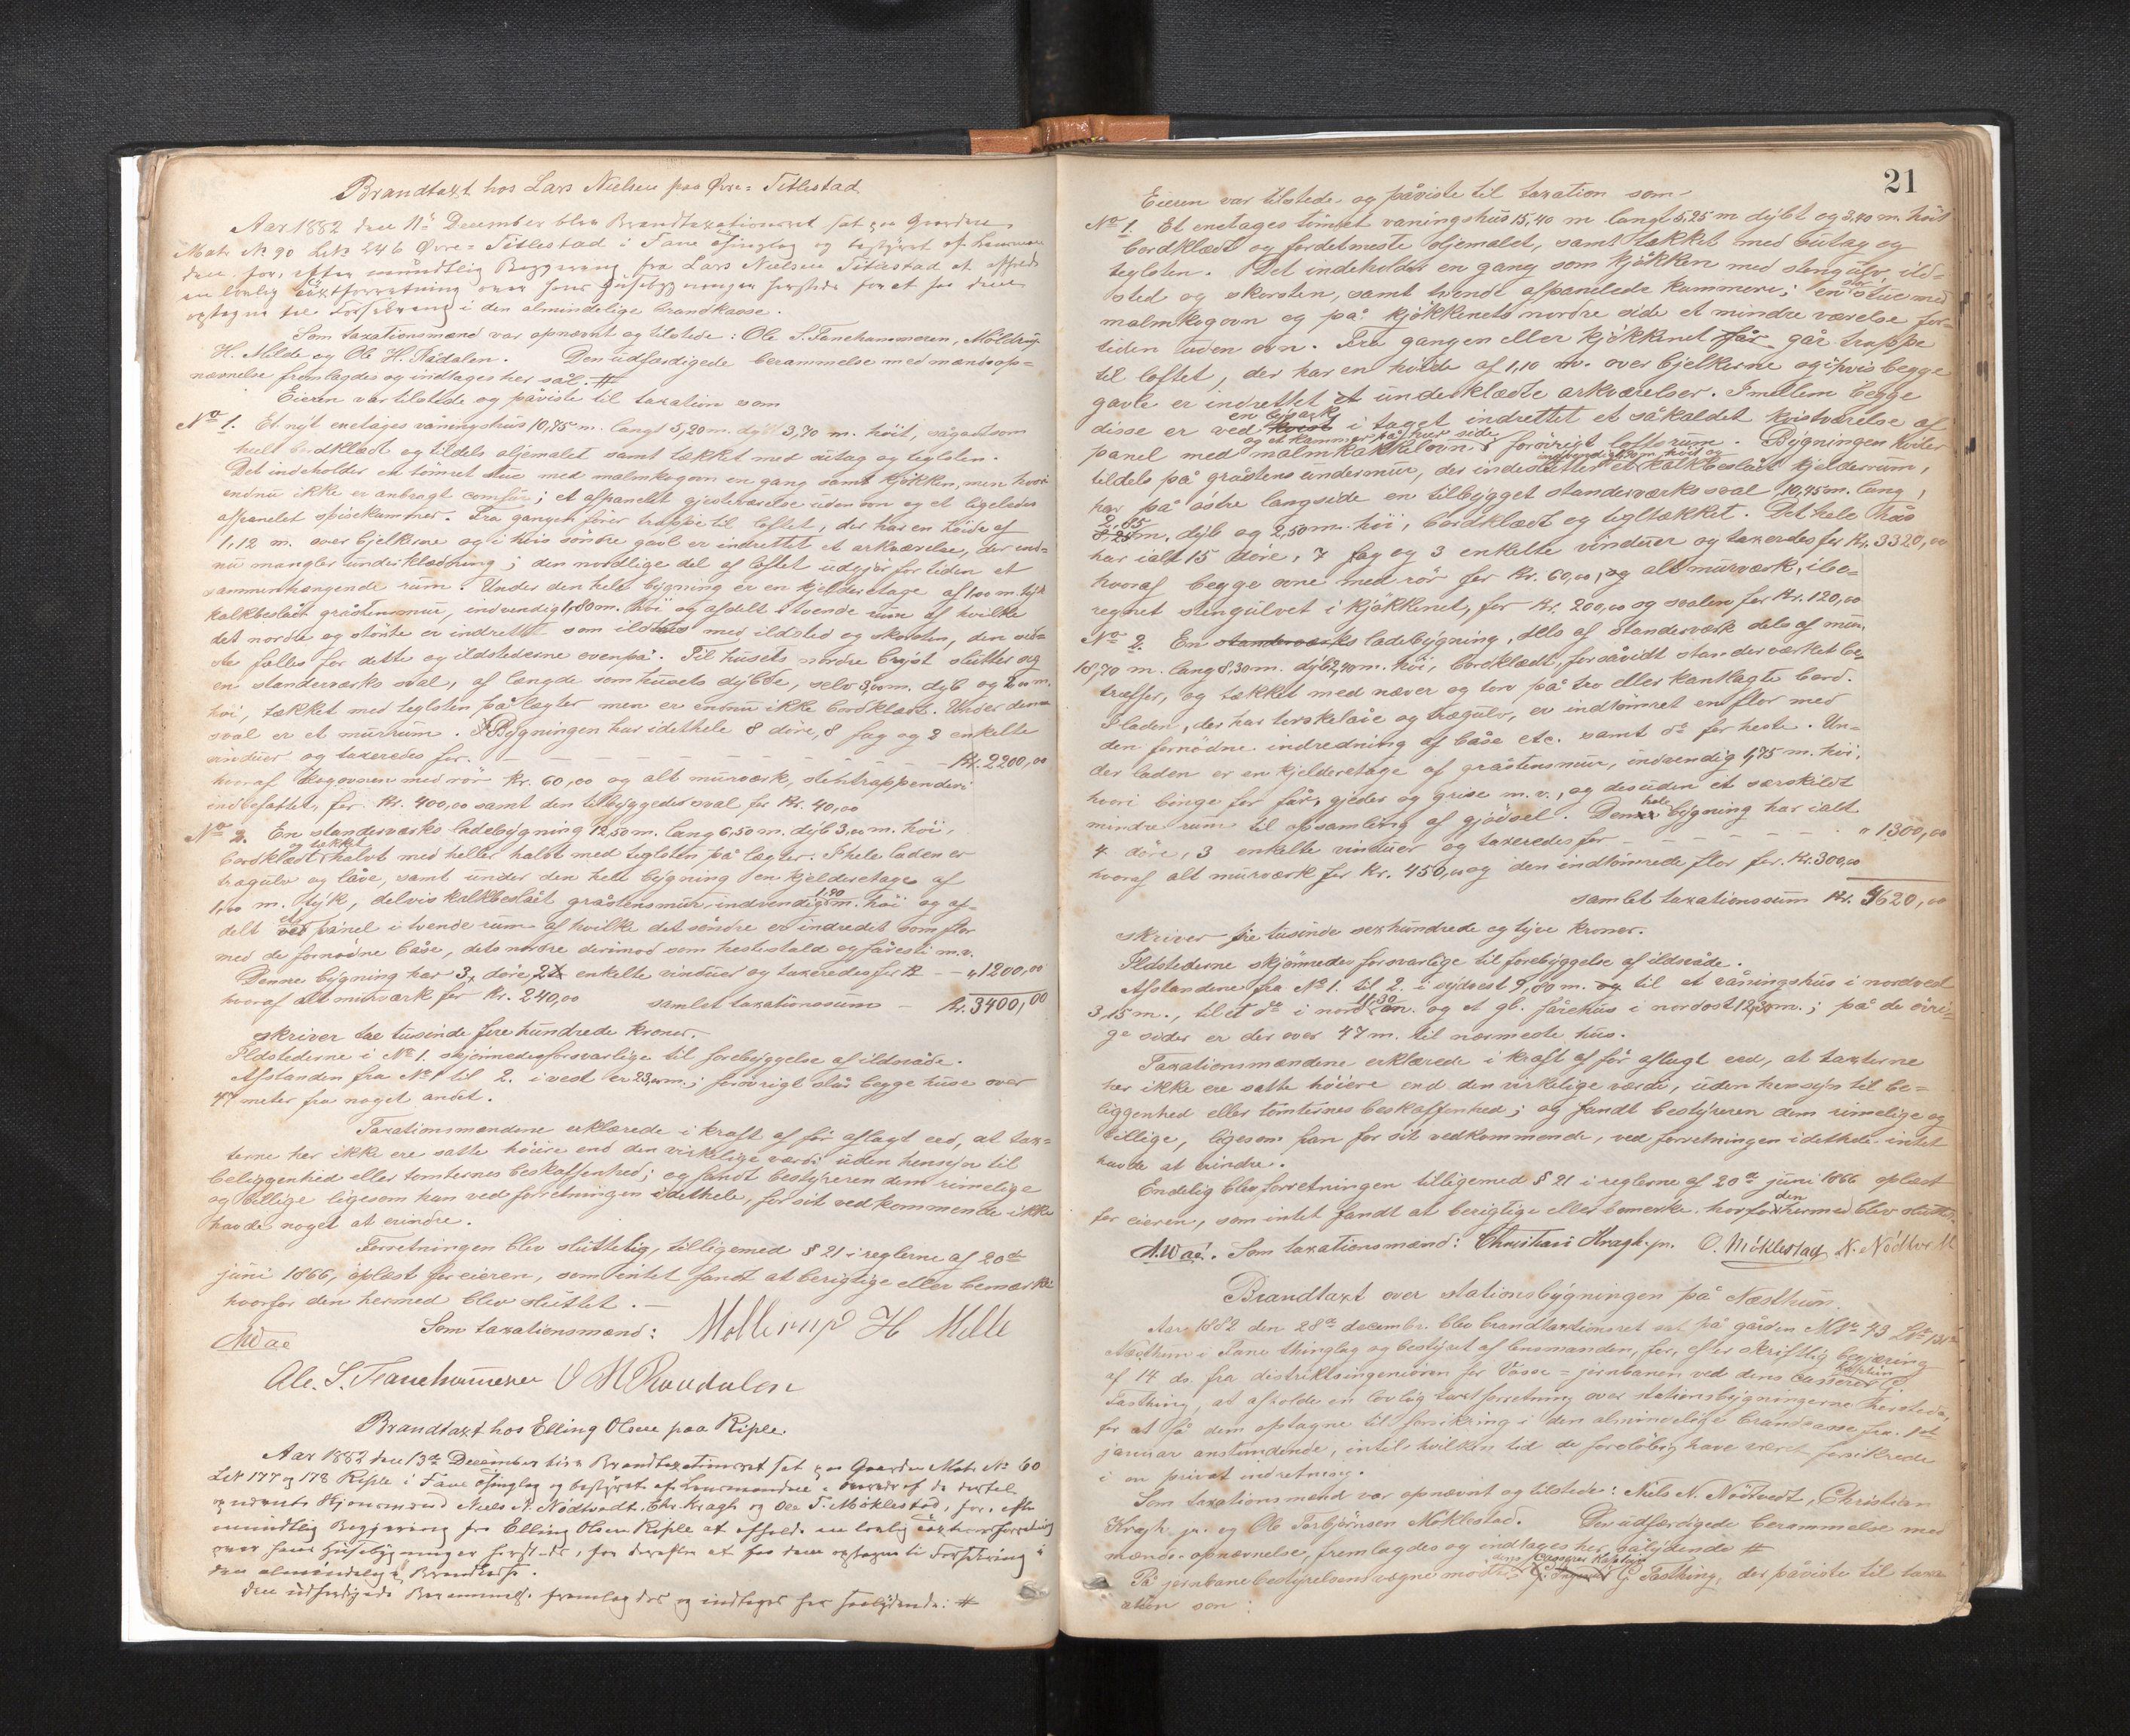 Brandtaxt hos Lars Nielsen paa Øvre=Titlestad
Aar 1882 den 11te December blev Brandtaxationsret sat paa Gaarden
Matr No 90 LNo 246 Øvre=Titlestad i Fane Thinglag og bestyret af Lensman
den for, efter mündtlig Begjæring fra Lars Nielsen Titlestad at afholde
en lovlig Taxtforretning over hans Hüsebygninger hersteds for at faa dem
optagne til Forsikring i den almindelige Brandkasse.
Som taxationsmænd var opnævnt og tilstede: Ole S. Fanehammeren, Möldrüp
H. Milde og Ole H. Rådalen. Den üdfærdigede berammelse med mandsop=
nævnelse fremlagdes og indtages her sål. #
Eieren var tilstede og påviste til taxation som
No 1. Et nyt enetages våningshüs 10,75 m. langt 5,20 m. dybt 3,70 m. höit, sågodtsom
helt bordklædt og tildels oljemalet samt tækket med sütag og teglsten.
Det indeholder en tömret stue med malmkogovn en gang samt kjökken, men hvori
endnu ikke er anbragt comfür; et afpanelt gjesteværelse uden ovn og et ligeledes
afpanelet spisekammer. Fra gangen förer trappe til loftet, der har en höide af
1,12 m. over bjelkerne og i hvis söndre gavl er indrettet et arkværelse, der end=
nü mangler underklædning; den nordlige del af loftet üdgjör for tiden et
sammenhængende rüm. Under den hele bygning er en kjelderetage af 1,00 m. tyk
kalkbeslåt gråstensmür, indvendig 1,80 m. höi og afdelt i tvende rüm af hvilke
det nordre og störste er indrettet som ildhüs med ildsted og skorsten, den sid=
ste fælles for dette og ildstederne ovenpå. Til husets nordre bryst slutter sig
en standerværks sval, af længde som hüsets dybde, selv 3,00 m. dyb og 2,00 m.
höi, tækket med teglsten på lægter men er endnu ikke bordklædt. Under denne
sval er et mürrüm. Bygningen har idethele 8 döre, 8 fag og 2 enkelte
vinduer og taxeredes for. — — — — — — Kr. 2200,00
hvoraf kogovnen med rör Kr. 60,00 og alt mürværk, stentrappen deri
indbefattet, for Kr. 400,00 samt den tilbyggede sval for Kr. 40,00
No 2. En standerværks ladebygning 12,50 m. lang 6,50 m. dyb 3,00 m. höi,
og tækket
bordklædt halvt med heller halvt med teglsten på lægter. I hele laden er
trægulv og låve, samt ünder den hele bygning en kjelderetage af
1,90
1,00 m. tyk, delvis kalkbeslåt gråstensmür, indvendig m. höi og af=
delt ved panel i tvende rum af hvilke det söndre er indredet som flor
med de fornödne båse, dets nordre derimod som hestestald og fåresti m.v.
Denne bygning har 3 döre, 2 enkelte vinduer og taxeredes for Kr — — „ 1200,00
hvoraf alt mürværk for Kr. 240,00 samlet taxationssum — Kr. 3400,00
skriver tre tusinde fire hundrede kroner.
Ildstederne i No 1. skjönnedes forsvarlige til forebyggelse af ildsvåde.
Afstanden fra No 1 til 2. i vest er 23,00 m.; forövrigt står begge huse over
47 meter fra noget andet.
Taxationsmændene erklærede i kraft af för aflagt eed, at tax=
terne her ikke ere satte höiere end den virkelige værdi uden hensyn til
beliggenhed eller tomternes beskaffenhed; og fandt bestyreren dem rimelige
og billige ligesom han ved forretningen idethele, for sit vedkommende ikke
havde noget at erindre.
Forretningen blev sluttelig, tilligemed § 21 i reglerne af 20de
juni 1866, oplæst for eieren, som intet fandt at berigtige eller bemærke
hvorfor den hermed blev sluttet. —
Som taxationsmænd: Mollerup H Milde
AWaa
Ole. S. Fanehammeren O H Raadalen
Brandtaxt hos Elling Olsen paa Riple.
Aar 1882 den 13de December blev Brandtaxationsret sat paa Gaarden Matr No 60
LN 177 og 178 Riple i Fane Thinglag og bestyret af Lensmanden i Overvær af de dertil
opnævnte Skjønsmænd Niels N. Nødtvedt, Chr. Kragh og Ole T. Møklestad, for, efter
mündtlig Begjæring fra Elling Olsen Riple at afholde en lovlig Taxtforretning
over hans Hüsebygninger hersteds, for derefter at faa dem optagne til Forsikring i
den almindelige Brandkasse.
Den üdfærdigede Berammelse fremlagdes og indtages her saalydende: #
21
Eieren var tilstede og påviste til taxation som
No 1. Et enetages tömret våningshüs 15,40 m langt 5,25 m dybt og 3,40 m. höit
bordklædt og fordetmeste oljemalet, samt tækket med sutag og
teglsten. Det indeholder en gang som kjökken med stengulv, ild=
stor
sted og skorsten, samt tvende afpanelede kammere; en stue med
malmkogovn og på kjökkenets nordre side et mindre værelse for=
tiden uden ovn. Fra gangen eller kjökkenet får går trappe
til loftet, der har en höide af 1,10 m. over bjelkerne og i hvis begge
gavle er indrettet et underklædte arkværelser. Imellem begge
en opsark
disse er ved kvist i taget indrettet et såkaldet kvistværelse af
og et kammer på hver side
panel med malmkakkelovn, forövrigt loftsrum. Bygningen hviler
tildels på gråstens undermur, der indeslutter et kalkbeslået kjelderrum,
har på östre langside en tilbygget standerværks sval 10,45 m. lang,
2,05
m. dyb og 2,50 m. höi, bordklædt og tegltækket. Det hele hüs
har ialt 15 döre, 7 fag og 3 enkelte vinduer og taxeredes for Kr. 3320,00
hvoraf begge ovne med rör for Kr. 60,00, og alt mürværk, ibe=
regnet stengulvet i kjökkenet, for Kr. 200,00 og svalen for Kr. 120,00
No 2. En standerværks ladebygning, dels af standerværk dels af mur,
18,70 m. lang 8,30 m. dyb 2,40 m. höi, bordklædt, forsåvidt standerværket be=
træffer, og tækket med næver og torv på tro eller kantlagte bord.
I laden, der har terskelåve og trægulv, er indtömret en flor med
den fornödne indredning af båse etc. samt do for heste. Un=
der laden er en kjelderetage af gråstensmur, indvendig 1,75 m. höi,
hvori binge for får, gjeder og grise m.v., og desuden et særskildt
hele
mindre rum til opsamling af gjödsel. Denne bygning har ialt
4 döre, 3 enkelte vinduer og taxeredes for — — — — „ 1300,00
hvoraf alt mürværk for Kr. 450,00 og den indtömrede flor for Kr. 300,00
samlet taxationssum Kr. 4620,00
skriver fire tusinde sexhundrede og tyve kroner.
Ildstederne skjönnedes forsvarlige til forebyggelse af ildsvåde.
Afstandene fra No 1. til 2. i sydvest 9,80 m. og til et våningshus i nordvest
11,30
3,15 m., til et do i nord m. og et gl. fårehus i nordost 12,30 m.; på de övri=
ge sider er der over 47 m. til nærmeste hus.
Taxationsmændene erklærede i kraft af för aflagt eed, at taxterne
her ikke ere satte höiere end den virkelige værdi, uden hensyn til be=
liggenhed eller tomternes beskaffenhed; og fandt bestyreren dem rimelige og
billige, ligesom han for sit vedkommende, ved forretningen idethele intet
havde at erindre.
Endelig blev forretningen tilligemed § 21 i reglerne af 20de juni 1866 oplæst
den
for eieren, som intet fandt at berigtige eller bemerke. hvorfor hermed blev sluttet.
AWaa. Som taxationsmænd: Christian Kragh jr. O. Möklestad N. Nödtvedt
Brandtaxt over stationsbygningen på Næsttun.
Aar 1882 den 28de decembr. blev brandtaxtionsret sat på gården MNo 43 LNo 131
Næsttun i Fane thinglag og bestyret af lensmanden, for, efter skriftlig begjæring
kaptein
af 14 ds. fra distriktsingeniören for Vosse=jernbanen ved dens casserer G.
Fasting, at afholde en lovlig taxtforretning over stationsbygningerne hersteds,
for at få dem optagne til forsikring i den almindelige brandkasse fra 1ste
januar anstundende, intil hvilken tid de forelöbig have været forsikrede
i en privat indretning.
Som taxationsmænd var opnævnt og tilstede: Niels N. Nödtvedt, Christian
Kragh jr. og Ole Torbjörnsen Möklestad. Den udfærdigede berammelse med
mands-opnævnelse, fremlagdes og indtages her, sålydende #
dens casserer kaptein
På jernbanebestyrelsens vegne mödte G Fasting, der påviste til taxa
ation som: